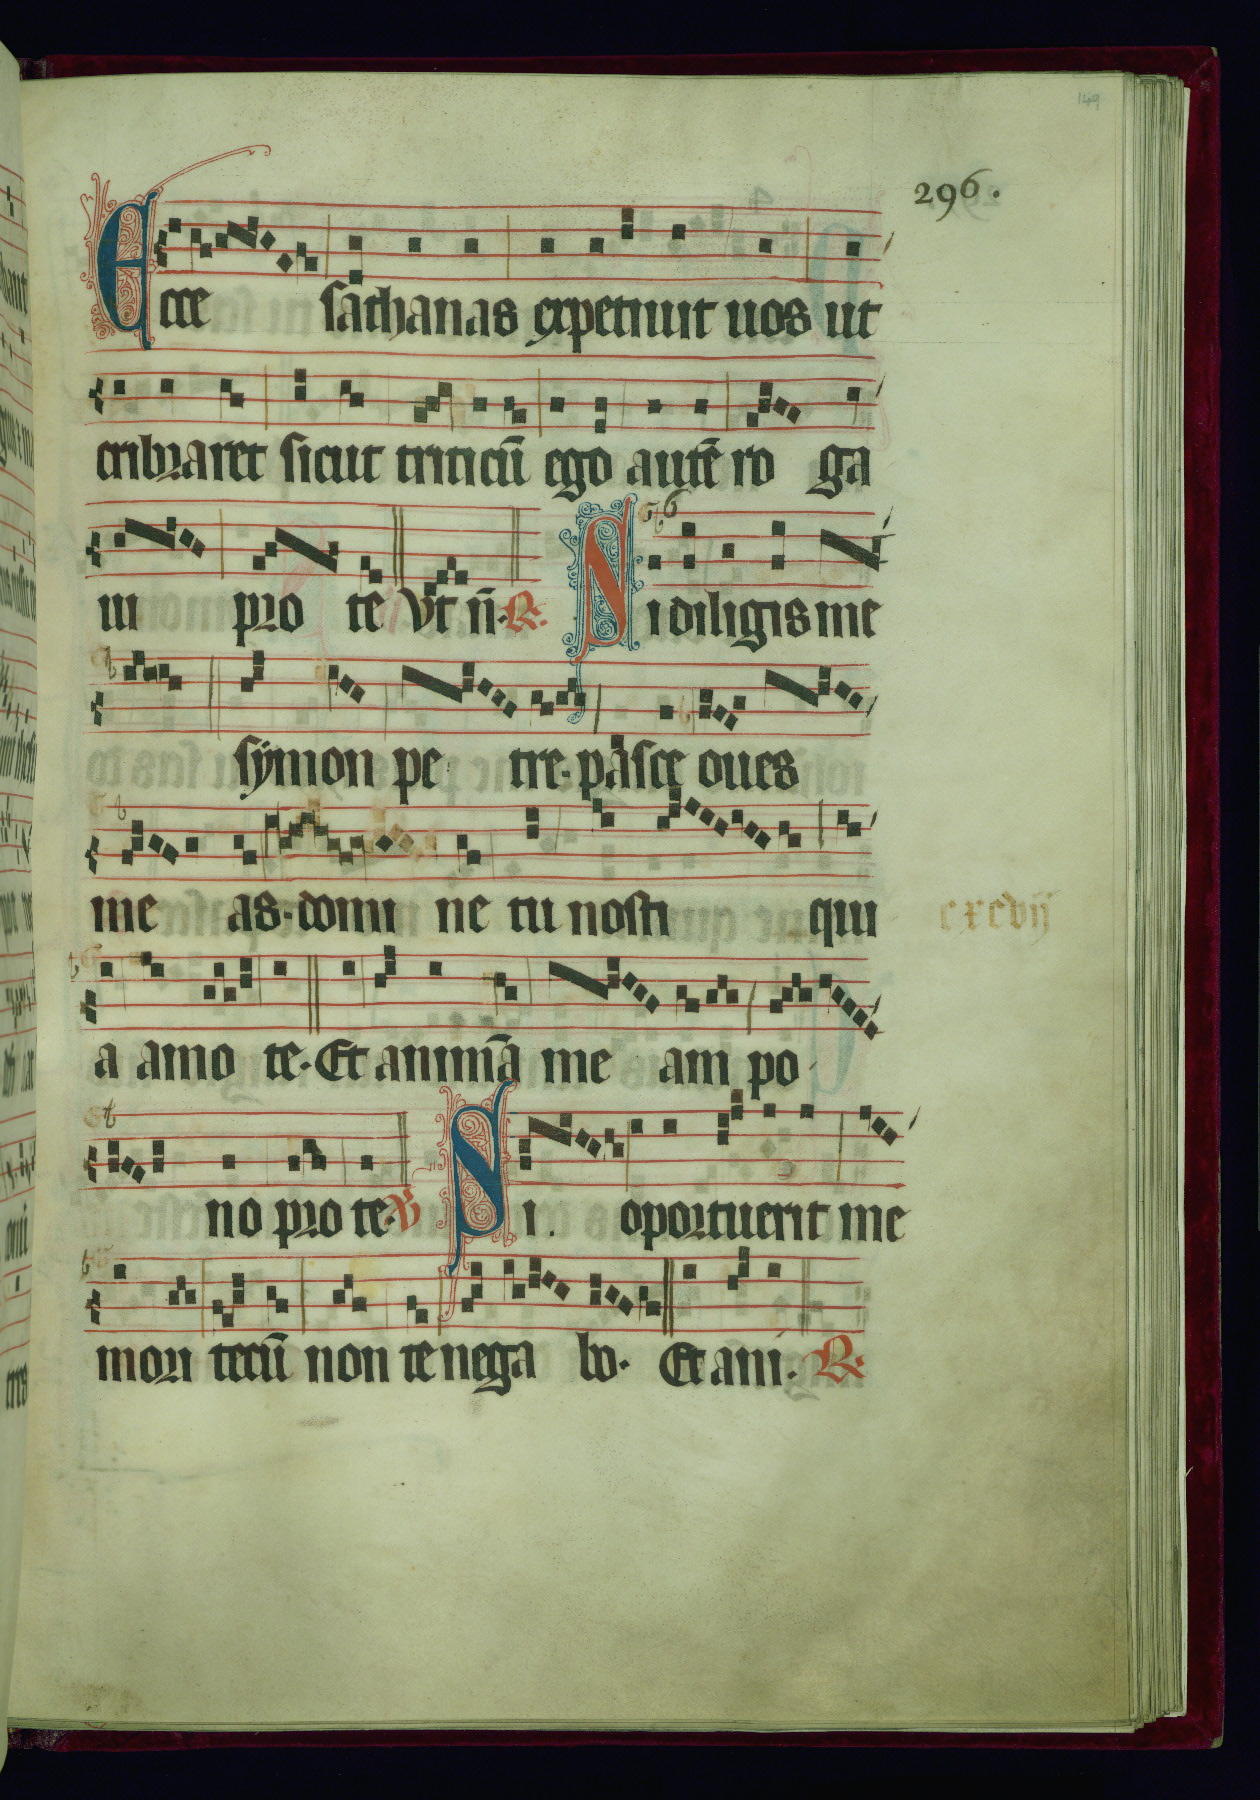 149
296.
Ecce sathanas expetiuit uos ut
cribraret sicut triticū ego autē ro ga
ui pro te Vt ñ. R.
Si diligis me
symon pe tre. pasce oues
me as. domi ne tu nosti qui
cxcvij
a amo te. Et animā me am po
no pro te. V Si oportuerit me
mori tecū non te nega bo. Et ani. R.